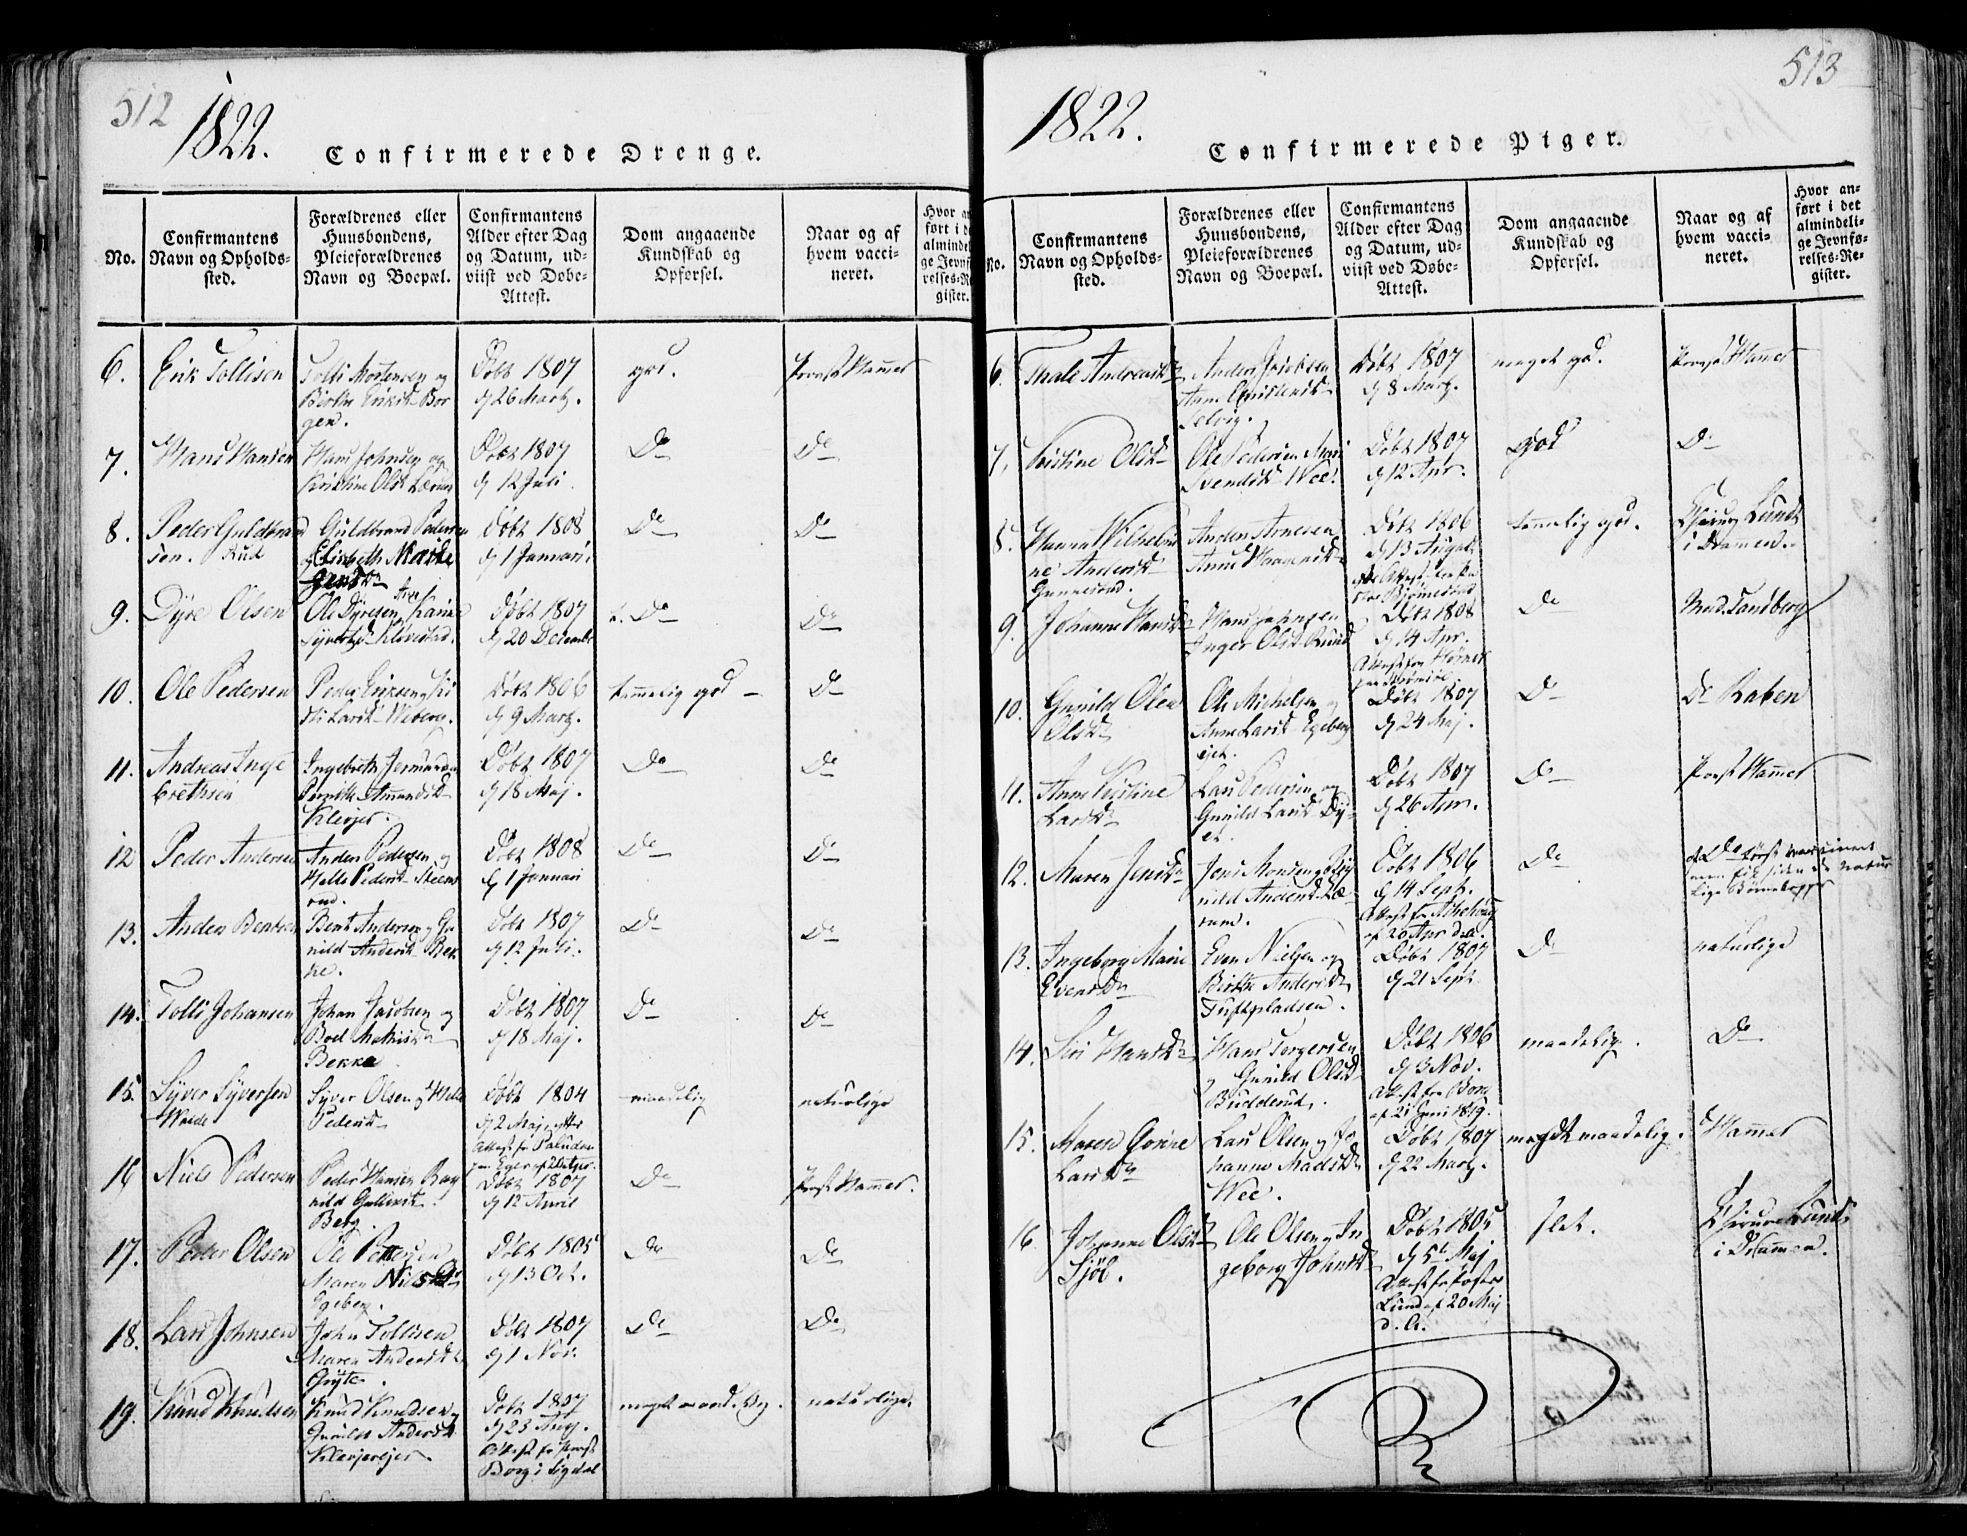 512
1822.
Confirmerede Drenge.
No.
Confirmantens
Navn og Opholds-
sted.
Forældrenes eller
Huusbondens,
Pleieforældrenes
Navn og Boepæl.
Confirmantens
Alder efter Dag
og Datum, ud-
viist ved Døbe-
Attest.
Dom angaaende
Kundskab og
Opførsel.
Naar og af
hvem vacci-
neret.
Hvor an
ført i d
almindel
ge Jevnf
relses-Re
gister.
6.
Erik Tollisen
Tolli Mortensen og
Birthe Eriksd Bor
gen.
Døbt 1807
d 26 Martz.
god.
Provst Hammer
7.
Hans Hansen
Hans Johnsen og
Kirstine Olsd Lærum
Døbt 1807
d 12 Juli.
Do
Do
8.
Peder Guldbrand
sen. Rud
Guldbrand Pedersen
og Elisbeth
Døbt 1808
d 1 Januari.
Do
Do
9.
Dyre Olsen
Ole Dyresen Kari
Syversd Klivstad.
Døbt 1807
d 20 December
Do
Do
10.
Ole Pedersen
Peder Eriksen Ki
sti Larsd Weberg.
Døbt 1806
d 9 Martz.
temmelig god
Do
11.
Andreas Inge
brethsen
Ingebreth
Pernille Amundsd
Klevjer.
Døbt 1807
d 18 Maj.
Do
Do
12
Peder Andersen
Anders Pedersen og
Helle Pedersd Steens
rud.
Døbt 1808
d 1 Januari
Do
Do
13.
Anders Bentsen
Bent Andersen og Gu
nild Andersd Bek
ke.
Døbt 1807
d 12 Juli.
Do
Do
14.
Tolli Johansen
Johan Jacobsen og
Boel Mathisd
Bekke
Døbt 1807
d 18 Maj.
Do
Do
15.
Syver Syversen
Syver Olsen og Helle
Pedersd
Døbt 1804
d 2 Maj efter
Attest fr Paludan
maadelig
naturlige
16
Niels Pedersen
Peder Hansen Rag
nild Gulliksd.
Berg.
Døbt 1807
d 12 April
Do
Provst Hammer.
17.
Peder Olsen
Ole Pettersen
Maren Nielsd
Egeberg.
Døbt 1805
d 13 Oct.
Do
Do
18.
Lars Johnsen
John Tollisen
Maren Andersd
Gryte.
Døbt 1807
d 1 Nov.
Do
Do
19.
Knud Knudsen
Knud Knudsen og
Gunild Andersd
Klevjerejer.
Døbt 1807
d 23 Aug.
Attest fr Provst
Borg i Sigdal
meget maadelig.
naturlige.
513
1822.
Confirmerede Piger.
No.
Confirmantens
Navn og Opholds-
sted.
Forældrenes eller
Huusbondens,
Pleieforældrenes
Navn og Boepæl.
Confirmantens
Alder efter Dag
og Datum, ud-
viist ved Døbe-
Attest.
Dom angaaende
Kundskab og
Opførsel.
Naar og af
hvem vacci-
neret.
Hvor an-
ført i det
almindeli-
ge Jevnfø-
relses-Re-
gister.
6.
Thale Andersd
Anders Jacobsen
Anne
Selvig.
Døbt 1807
d 8 Martz.
meget god.
Provst Hammer
7.
Kistine Olsd
Ole Pedersen Mari
Svendsd Wee.
Døbt 1807
d 12 Apr.
god
Do
8.
Hanna Wilhelmi
ne Andersd
Gunnesrud.
Anders Arnesen
Anne Haagensd
Døbt 1806
d 13 August
temmelig god.
Chirurg Lund
i Dramen.
9.
Johanne Hansd
Hans Johnsen
Inger Olsd Rund
Døbt 1808
d 14 Apr.
Do
Mad. Sandberg
10.
Gunild Olea
Olsd
Ole Michelsen og
Anne Larsd Egeberg
ejet.
Døbt 1807
d 24 Maj.
Do
Do Raben
11.
Anne Kistine
Larsd
Lars Pedersen og
Gunild Larsd Dy-
et.
Døbt 1807
d 26 Apr.
Do
Provst Hammer
12.
Maren Jensd
Jens Monsen og Rag
nild Andersd Læ-
rum.
Døbt 1806
d 14 Sept.
Attest fr
af 20 Apr d.A.
Do
af Do først vaccineret
men fik siden de Natur
lige Børnekopper
13.
Ingeborg Marie
Evensd
Even Nielsen og
Birthe Andersd
Tuftpladsen.
Døbt 1807
d 21 Sept
Do
naturlige
14.
Siri Hansd
Hans Torgersen
og Gunild Olsd
Budderud.
Døbt 1806
d 3 Nov.
Attest fra Borg
af 21 Juni 1819.
maadelig.
Do
15.
Maren Gorine
Larsd
Lars Olsen og Jo
hanne Madsd
Wee.
Døbt 1807
d 22 Martz.
meget maadelig.
Hammer
16
Johanne Olsd
Sjöl.
Ole Olsen og In
geborg Johnsd
Døbt 1805
d 5te Maj
Attest fr Pastor
Lund af 20 Maj
d. A.
slet.
Chirurg Lund
i Drammen.